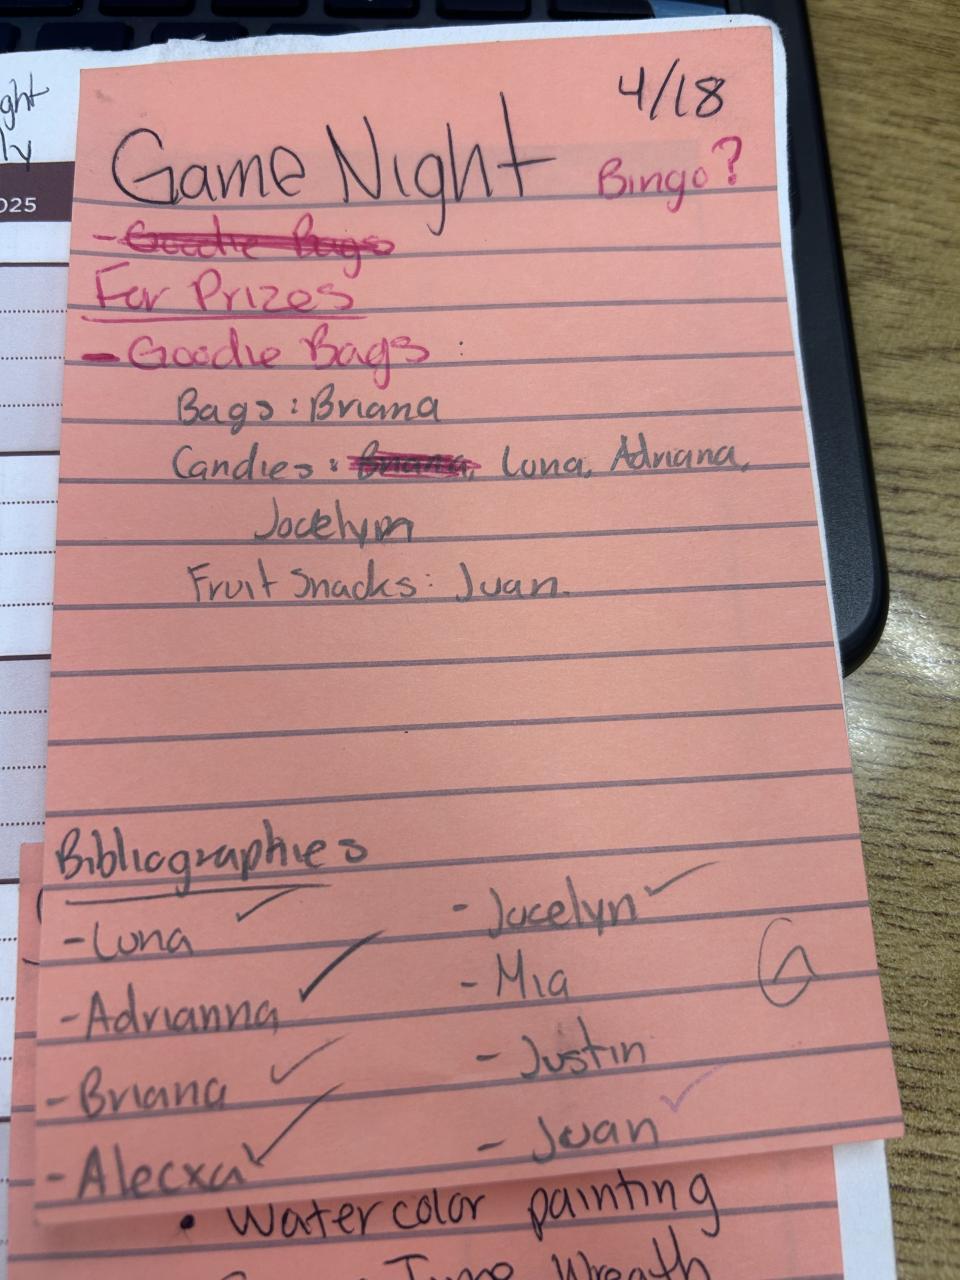 ght
ly
025
4/18
Game Night Bingo?
- Goodie Bags
For Prizes
- Goodie Bags :
Bags : Briana
Candies : Briana, Luna, Adriana,
Jocelym
Fruit Snacks : Juan.
Bibliographies
- Luna ✓
- Jocelyn ✓
- Adrianna ✓
- Mia
- Briana ✓
- Justin
- Alecxa ✓
- Juan ✓
G
• Watercolor painting
Wreath